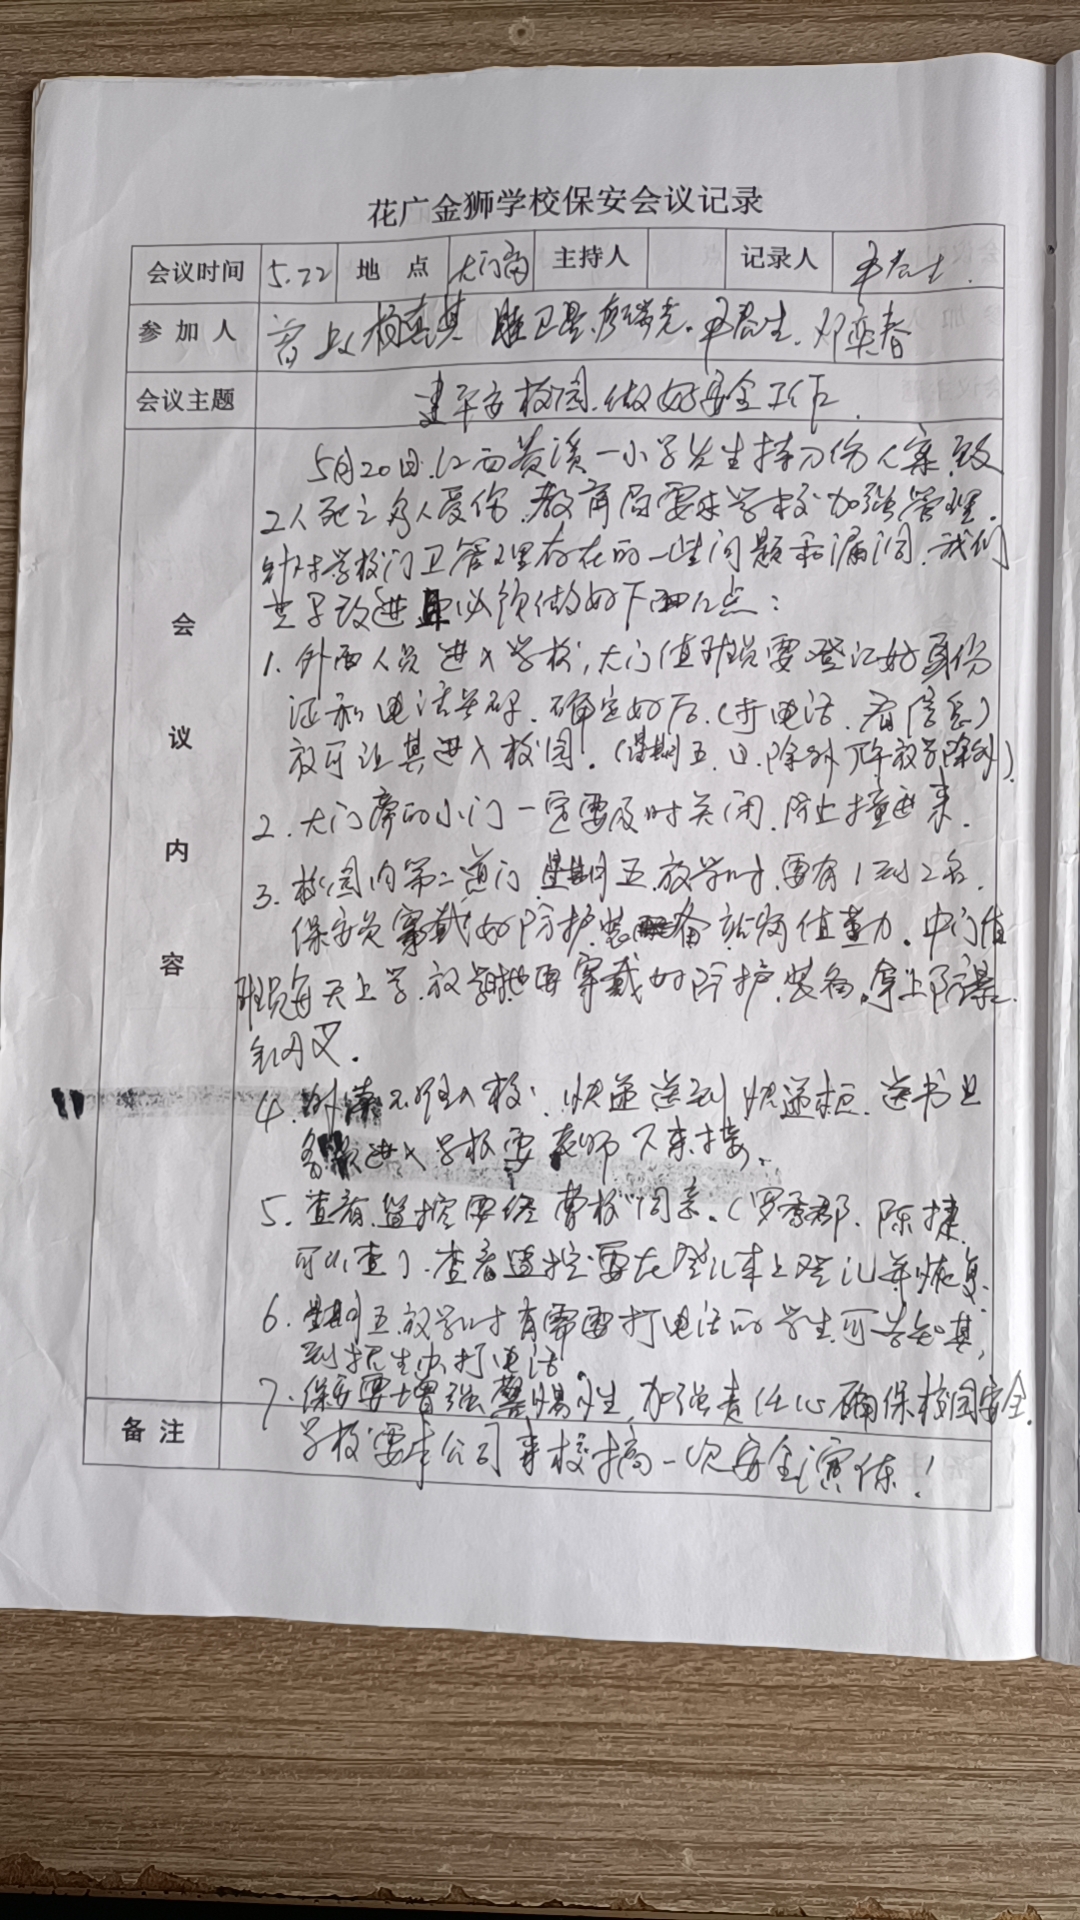 花广金狮学校保安会议记录
会议时间 5.22 地点 大门岗 主持人 记录人
参加人
会议主题 建平安校园.做好安全工作.
会议内容
5月20日.江西贵溪一小学发生持刀伤人案.致
2人死亡多人受伤.教育局要求学校加强管理.
针对学校门卫管理存在的一些问题和漏洞.我们
必须做好下面几点:
1. 外面人员进入学校,大门值班员要登记好身份
证和电话号码.确定好后.(打电话.看信息)
放可让其进入校园.(星期五.日.除外 下午放学除外)
2. 大门旁的小门一定要及时关闭.防止撞进来.
3. 校园内第二道门 星期五.放学时.要有1到2名.
保安员穿戴好防护装备站岗值勤.中门值
班员每天上学.放学时也要穿戴好防护装备.拿上防暴
钢叉.
4. 外卖不准入校.快递送到快递柜.送书
进入学校要老师下来接.
5. 查看监控要经曹校同意.(罗秀郡.陈捷.
可以查).查看监控要在登记本上登记并恢复.
6. 星期五.放学时有需要打电话的学生.可告知其,
到招生办打电话.
7. 保安要增强警惕性,加强责任心确保校园安全.
备注 学校要求公司来校搞一次安全演练!